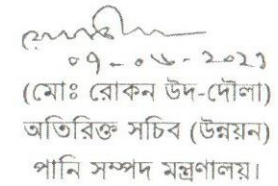 ০৭-০৬-২০২১
(মোঃ রোকন উদ-দৌলা)
অতিরিক্ত সচিব (উন্নয়ন)
পানি সম্পদ মন্ত্রণালয়।